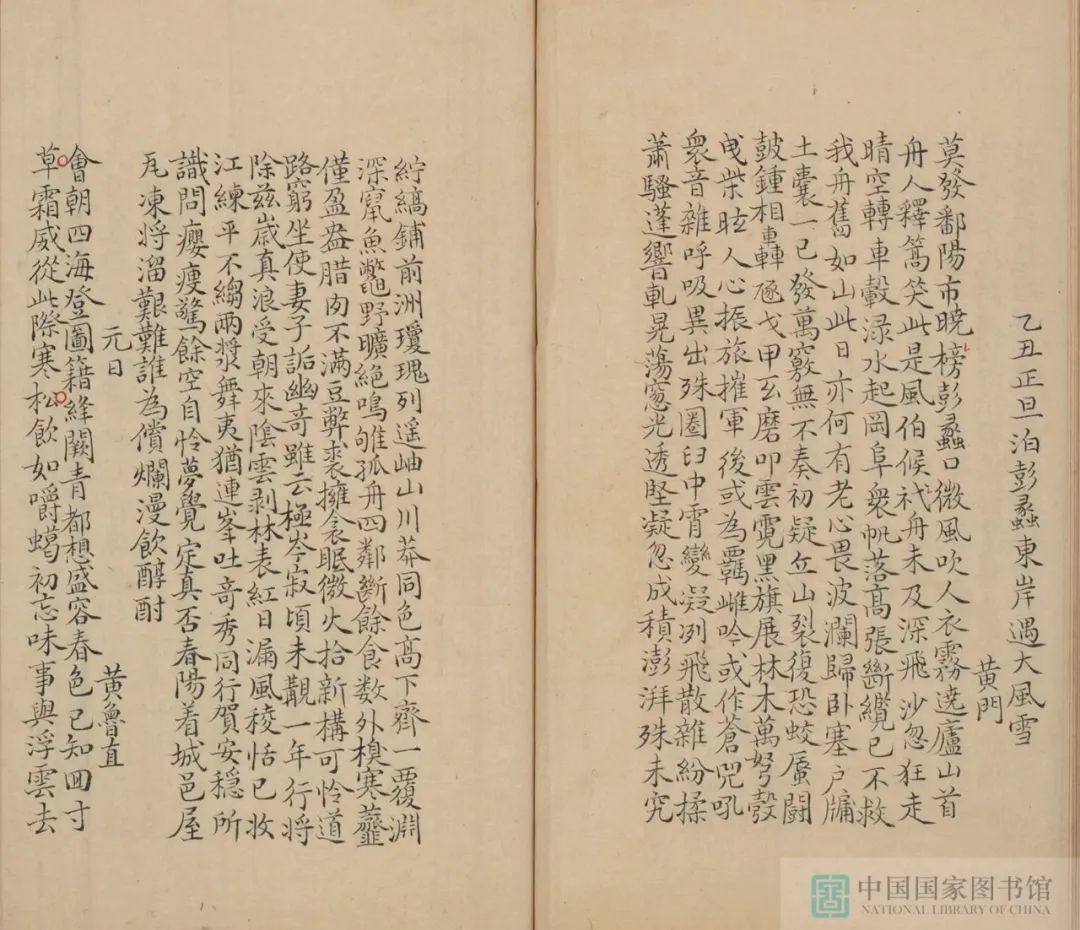 乙丑正旦泊彭蠡東岸遇大風雪
黄門
莫發鄱陽市曉榜彭蠡口微風吹人衣霧遶廬山首
舟人釋篙笑此是風伯候杙舟未及深飛沙忽狂走
晴空轉車轂渌水起岡阜衆帆落髙張斷纜已不救
我舟舊如山此日亦何有老心畏波瀾歸卧塞户牖
土囊一已發萬竅無不奏初疑丘山裂復恐蛟蜃鬭
鼓鍾相轟豗戈甲玄磨叩雲霓黑旗展林木萬弩彀
曵柴眩人心振旅摧軍後或為羈雌吟或作蒼兕吼
衆音雜呼吸異出殊圈臼中霄變凝冽飛散雜紛揉
蕭騷蓬響乹晃蕩窻光透堅凝忽成積澎湃殊未究
紵縞鋪前洲瓊瑰列遥岫山川莽同色髙下齊一覆淵
深竄魚鼈野曠絶鳴雊孤舟四鄰斷餘食数外糗寒虀
僅盈盎腊肉不满豆弊裘擁衾眠微火拾新構可怜道
路窮坐使妻子詬幽竒雖云極岑寂頃未覯一年行將
除兹嵗真浪受朝來隂雲剥林表紅日漏風稜恬已收
江練平不縐兩槳舞夷猶連峯吐竒秀同行賀安穏所
識問癭瘦驚餘空自怜夢覺定真否春陽着城邑屋
瓦凍將溜艱難誰為償爛漫飲醇酎
元日
黄魯直
會朝四海登圖籍絳闕青都想盛容春色已知囬寸
草霜威從此際寒松飲如嚼蝎初忘味事與浮雲去
中国国家图书馆
NATIONAL LIBRARY OF CHINA